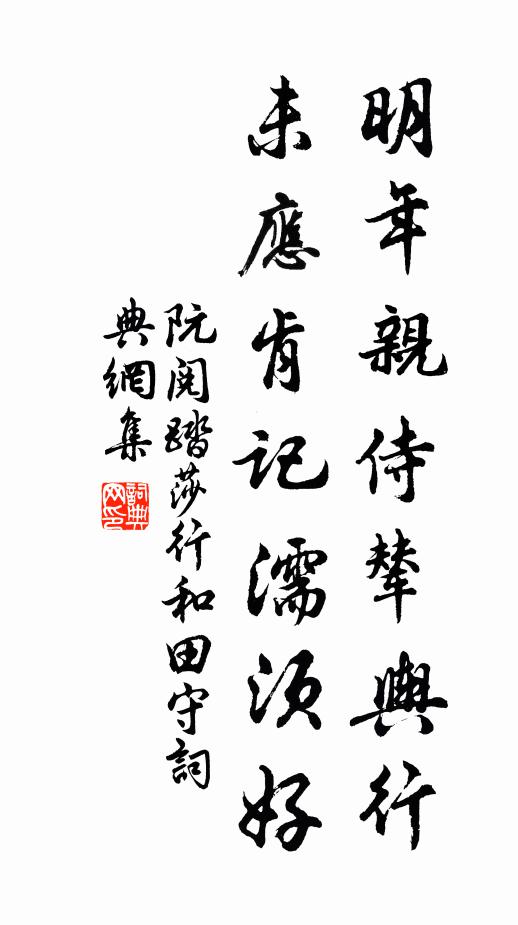 明年親侍輦輿行
未應肯記濡須好
阮閱踏莎行和田守詞
典網集
詞典網印